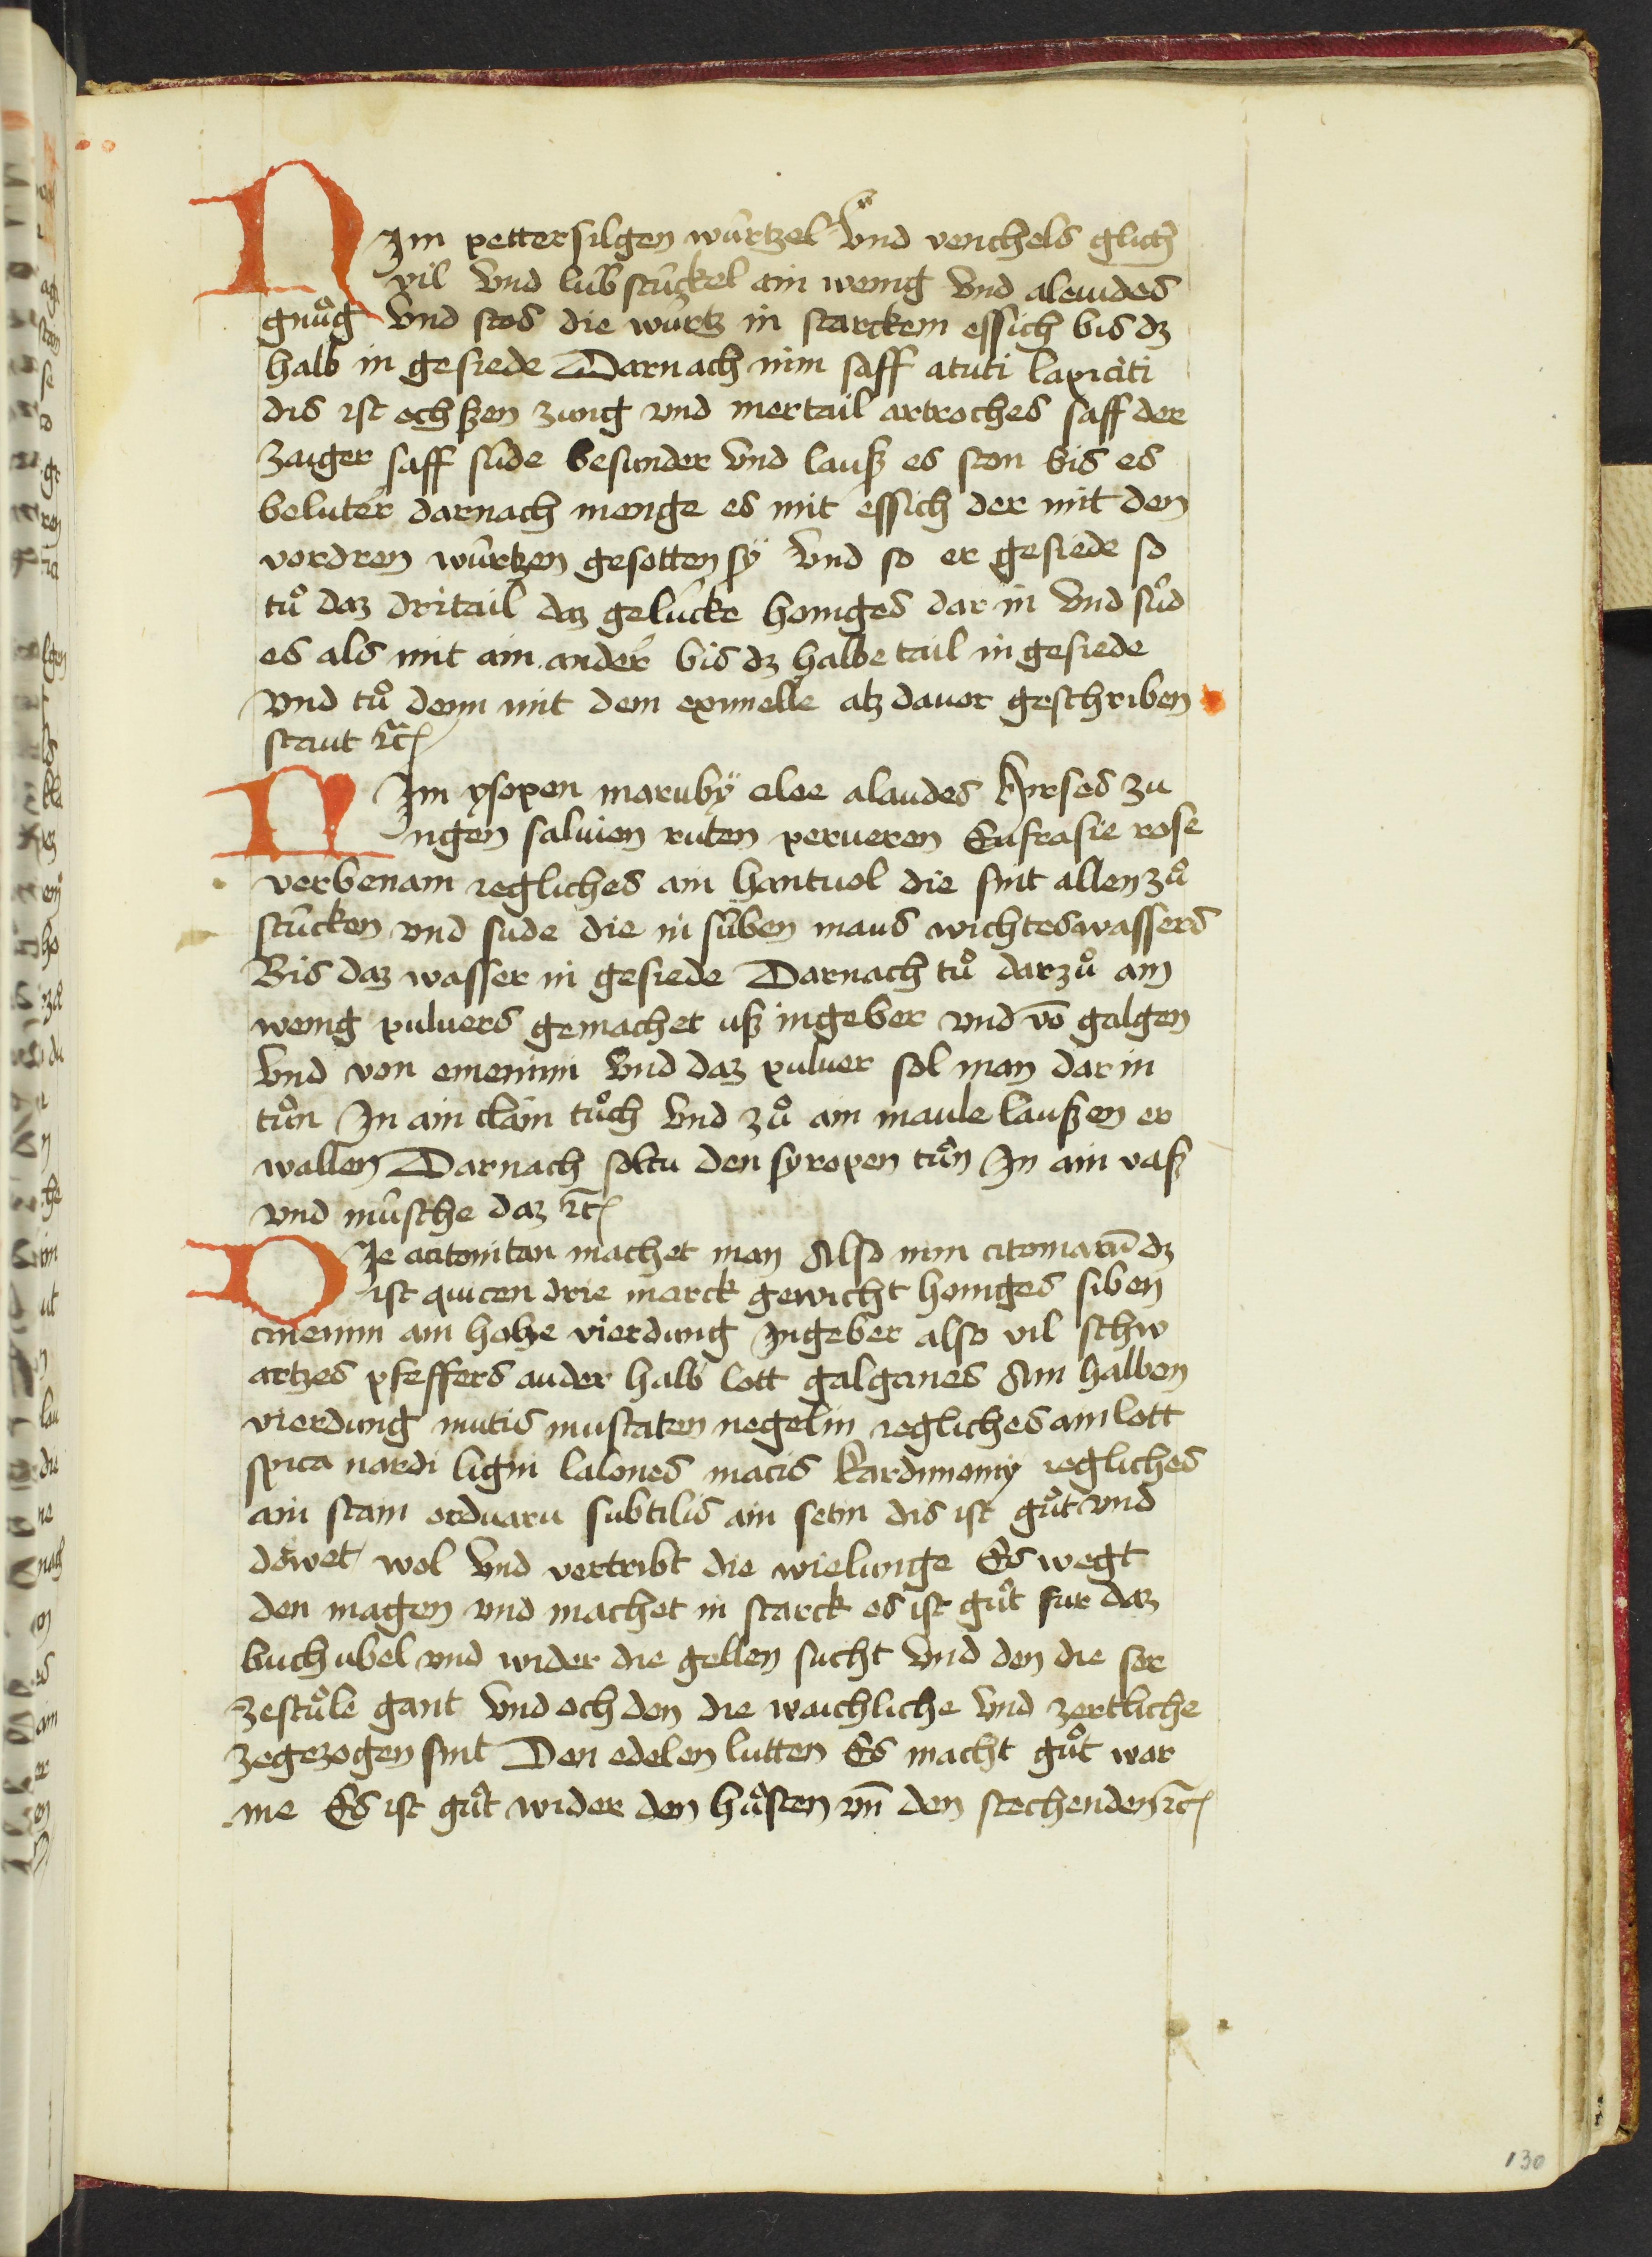 NIm pettersilgen wúrtzel vnd venchels glich
vil vnd lúbstúckel ain wenig vnd alendes
gnuͦg vnd stos die wúrtz in starckem essich bis dz
halb in gesiede Darnach nim saff atuti lapiciti
dis ist ochsßen zung vnd mertail artroches saff der
zaiger saff súde besunder vnd lauß es ston bis es
beluter darnach menge es mit essich der mit den
vordren wúrtzen gesotten sÿ vnd so er gesiede so
tuͦ daz dritail daz gelúcke honiges dar in vnd súd
es als mit ain ander bis dz halbe tail in gesiede
vnd tuͦ denn mit dem eximelle alz dauor geschriben
staut ꝛc̃
NIm ysopen marubÿ aloe alandes kirses zu
ngen saluien ruten perueren Eufrasie rose
verbenam iegliches ain hantuol die sint allen zuͦ
stúcken vnd sude die in súben maus wichtes wassers
Bis daz wasser in gesiede Darnach tuͦ darzuͦ ain
wenig puluers gemachet uß ingeber vnd võ galgen
vnd von emenimi vnd daz puluer sol man dar in
tuͦn In ain clain tuͦch vnd zuͦ ain maule laußen er
wallen Darnach soltu den syropen tuͦn In ain vaß
vnd músche daz ꝛc̃
DIe acitonitan machet man Also nim citomarũ dz
ist quicen drie marck gewicht honiges siben
cinenim ain holze vierdung Ingeber also vil schw
artzes pfeffers ander halb lott galganes Ain halben
vierdung mutis mustaten negelin iegliches ain lott
spica nardi ligni lalones macis kardimomy iegliches
ain stain orduaru subtilis ain setin dis ist guͦt vnd
döwet wol vnd vertribt die wielunge Es wegt
den magen vnd machet in starck es ist guͦt fur daz
buch ubel vnd wider die gellen sucht vnd den die ser
ze stuͦle gant vnd och den die waichliche vnd zertliche
zegezogen sint Den edelen lutten Es macht guͦt war
me Es ist guͦt wider den huͦsten vñ den stechenden ꝛc̃
130